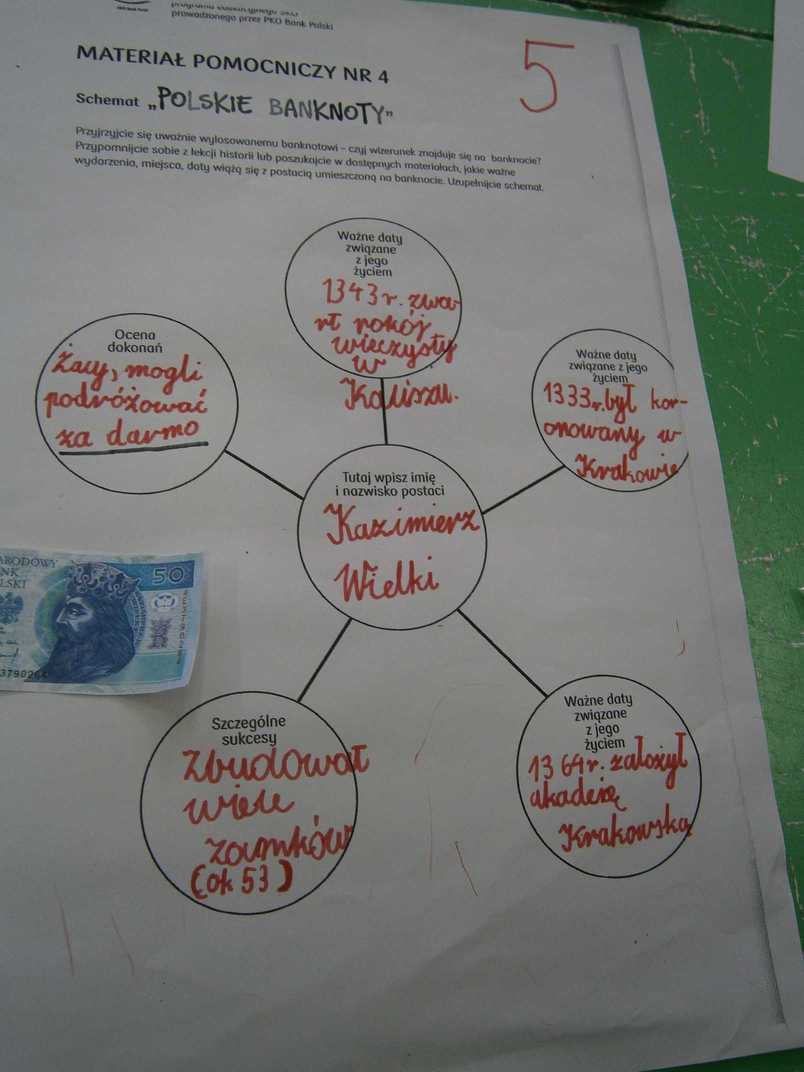 programu edukacyjnego SKO
prowadzonego przez PKO Bank Polski
5
MATERIAŁ POMOCNICZY NR 4
Schemat „POLSKIE BANKNOTY”
Przyjrzyjcie się uważnie wylosowanemu banknotowi – czyj wizerunek znajduje się na banknocie?
Przypomnijcie sobie z lekcji historii lub poszukajcie w dostępnych materiałach, jakie ważne
wydarzenia, miejsca, daty wiążą się z postacią umieszczoną na banknocie. Uzupełnijcie schemat.
Ważne daty
związane
z jego
życiem
1343 r. zwa
rł pokój
wieczysty
w
Kaliszu.
Ocena
dokonań
Żacy, mogli
podróżować
za darmo
Ważne daty
związane z jego
życiem
1333r. był kor-
onowany w
Krakowie
Tutaj wpisz imię
i nazwisko postaci
Kazimierz
Wielki
ARODOWY
NK
LSKI
50
Szczególne
sukcesy
zbudował
wiele
zamków
(ok 53)
Ważne daty
związane
z jego
życiem
1364r. założył
akademię
Krakowską